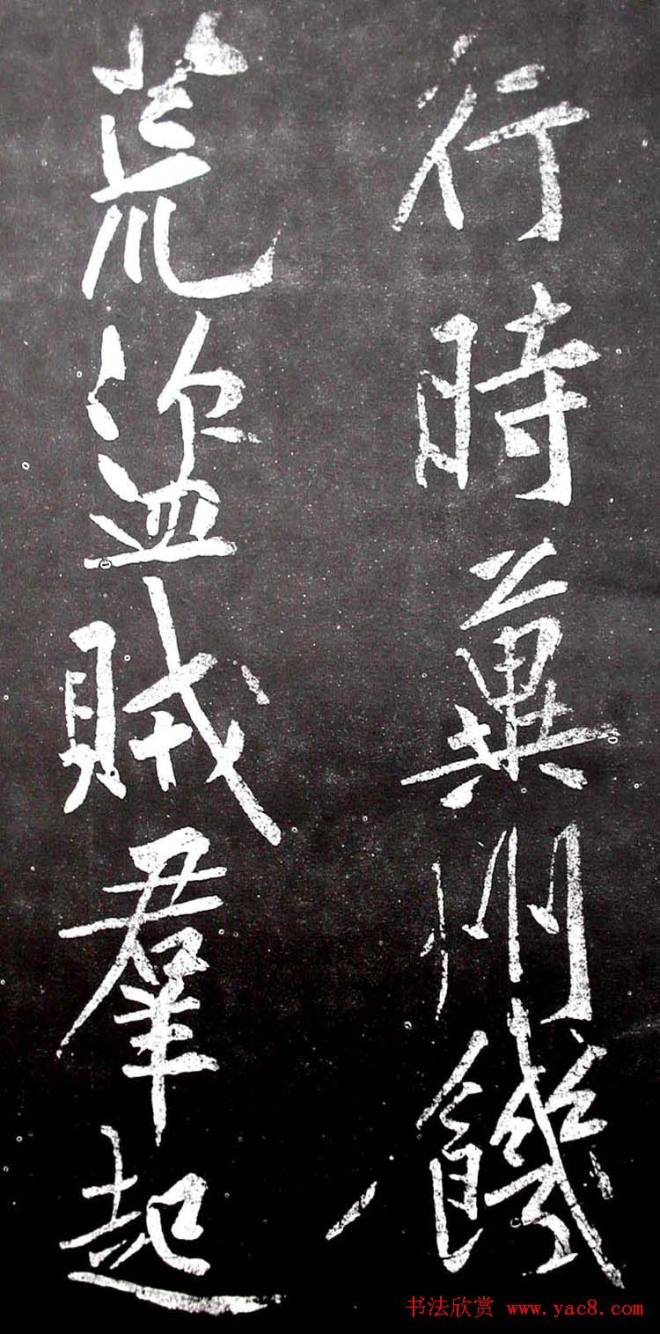 行時冀州饑
荒盜賊羣起
书法欣赏 www.yac8.com